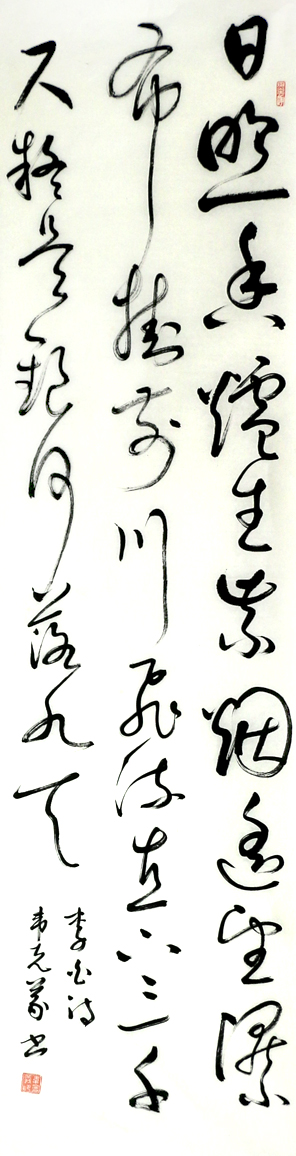 日照香爐生紫烟遥望瀑
布掛前川飛流直下三千
尺疑是銀河落九天
李白诗
韦克義书